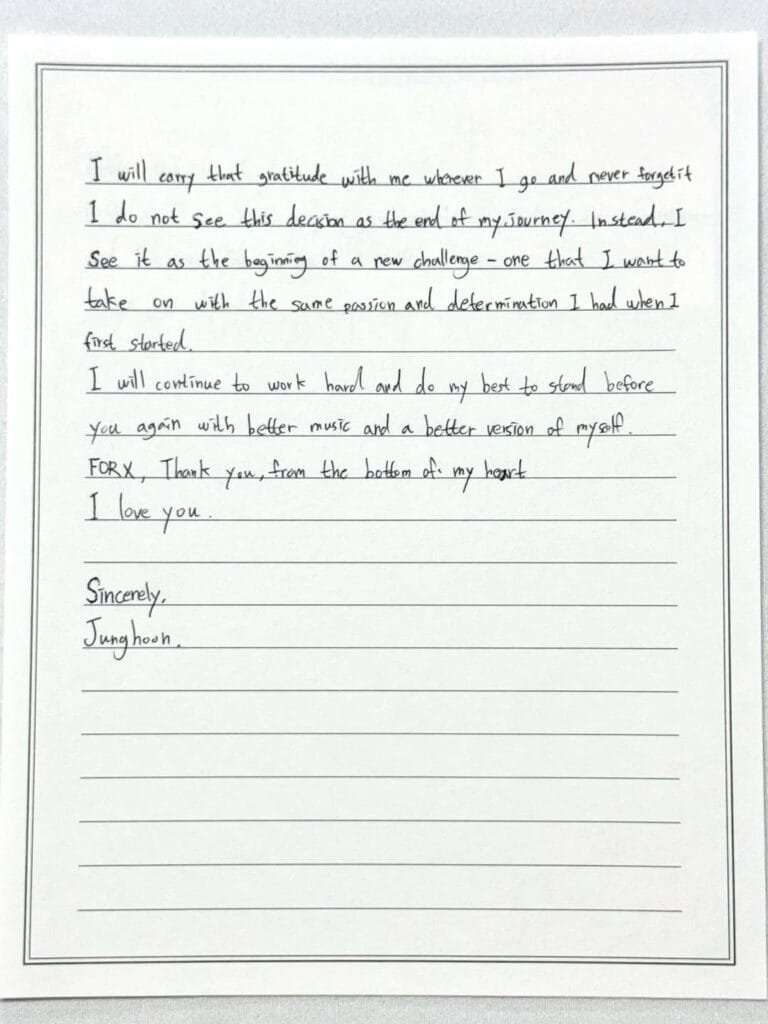 I will carry that gratitude with me wherever I go and never forget it
I do not see this decision as the end of my journey. Instead, I
see it as the beginning of a new challenge - one that I want to
take on with the same passion and determination I had when I
first started.
I will continue to work hard and do my best to stand before
you again with better music and a better version of myself.
FORX, Thank you, from the bottom of my heart
I love you.
Sincerely,
Junghoon.